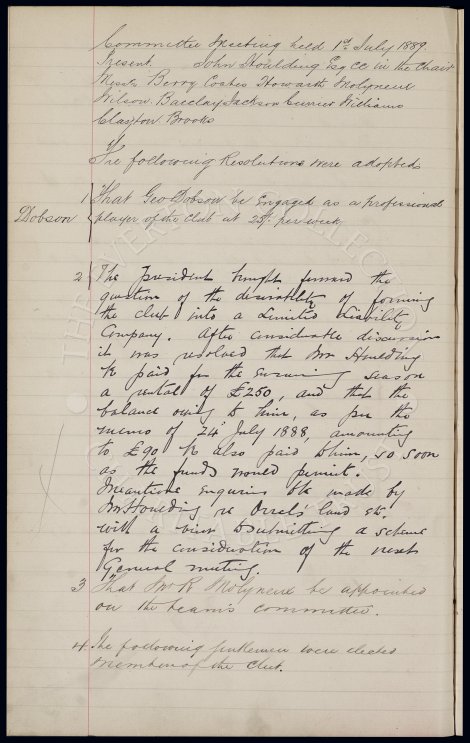 Committee Meeting held 1st July 1889.
Present John Houlding Esq CC in the Chair
Messrs Berry Coates Howarth Molyneux
Wilson Barclay Jackson Currier Williams
Clayton Brooks
The following Resolutions were adopted
1 That Geo Dobson be Engaged as a professional
Dobson player of the club at 25/- per week
2 The President brought forward the
question of the desirability of forming
the club into a Limited Liability
Company. After considerable discussion
it was resolved that Mr Houlding
be paid for the ensuing season
a rental of £250, and that the
balance owing to him, as per the
memo of 24 July 1888, amounting
to £90 be also paid to him, so soon
as the funds would permit.
Meantime enquiries to be made by
Mr Houlding re Orrel's land etc.
with a view to submitting a scheme
for the consideration of the next
General meeting.
3 That Mr R Molyneux be appointed
on the team's committee.
4 The following gentlemen were elected
Members of the Club.
THE EVERTON COLLECTION